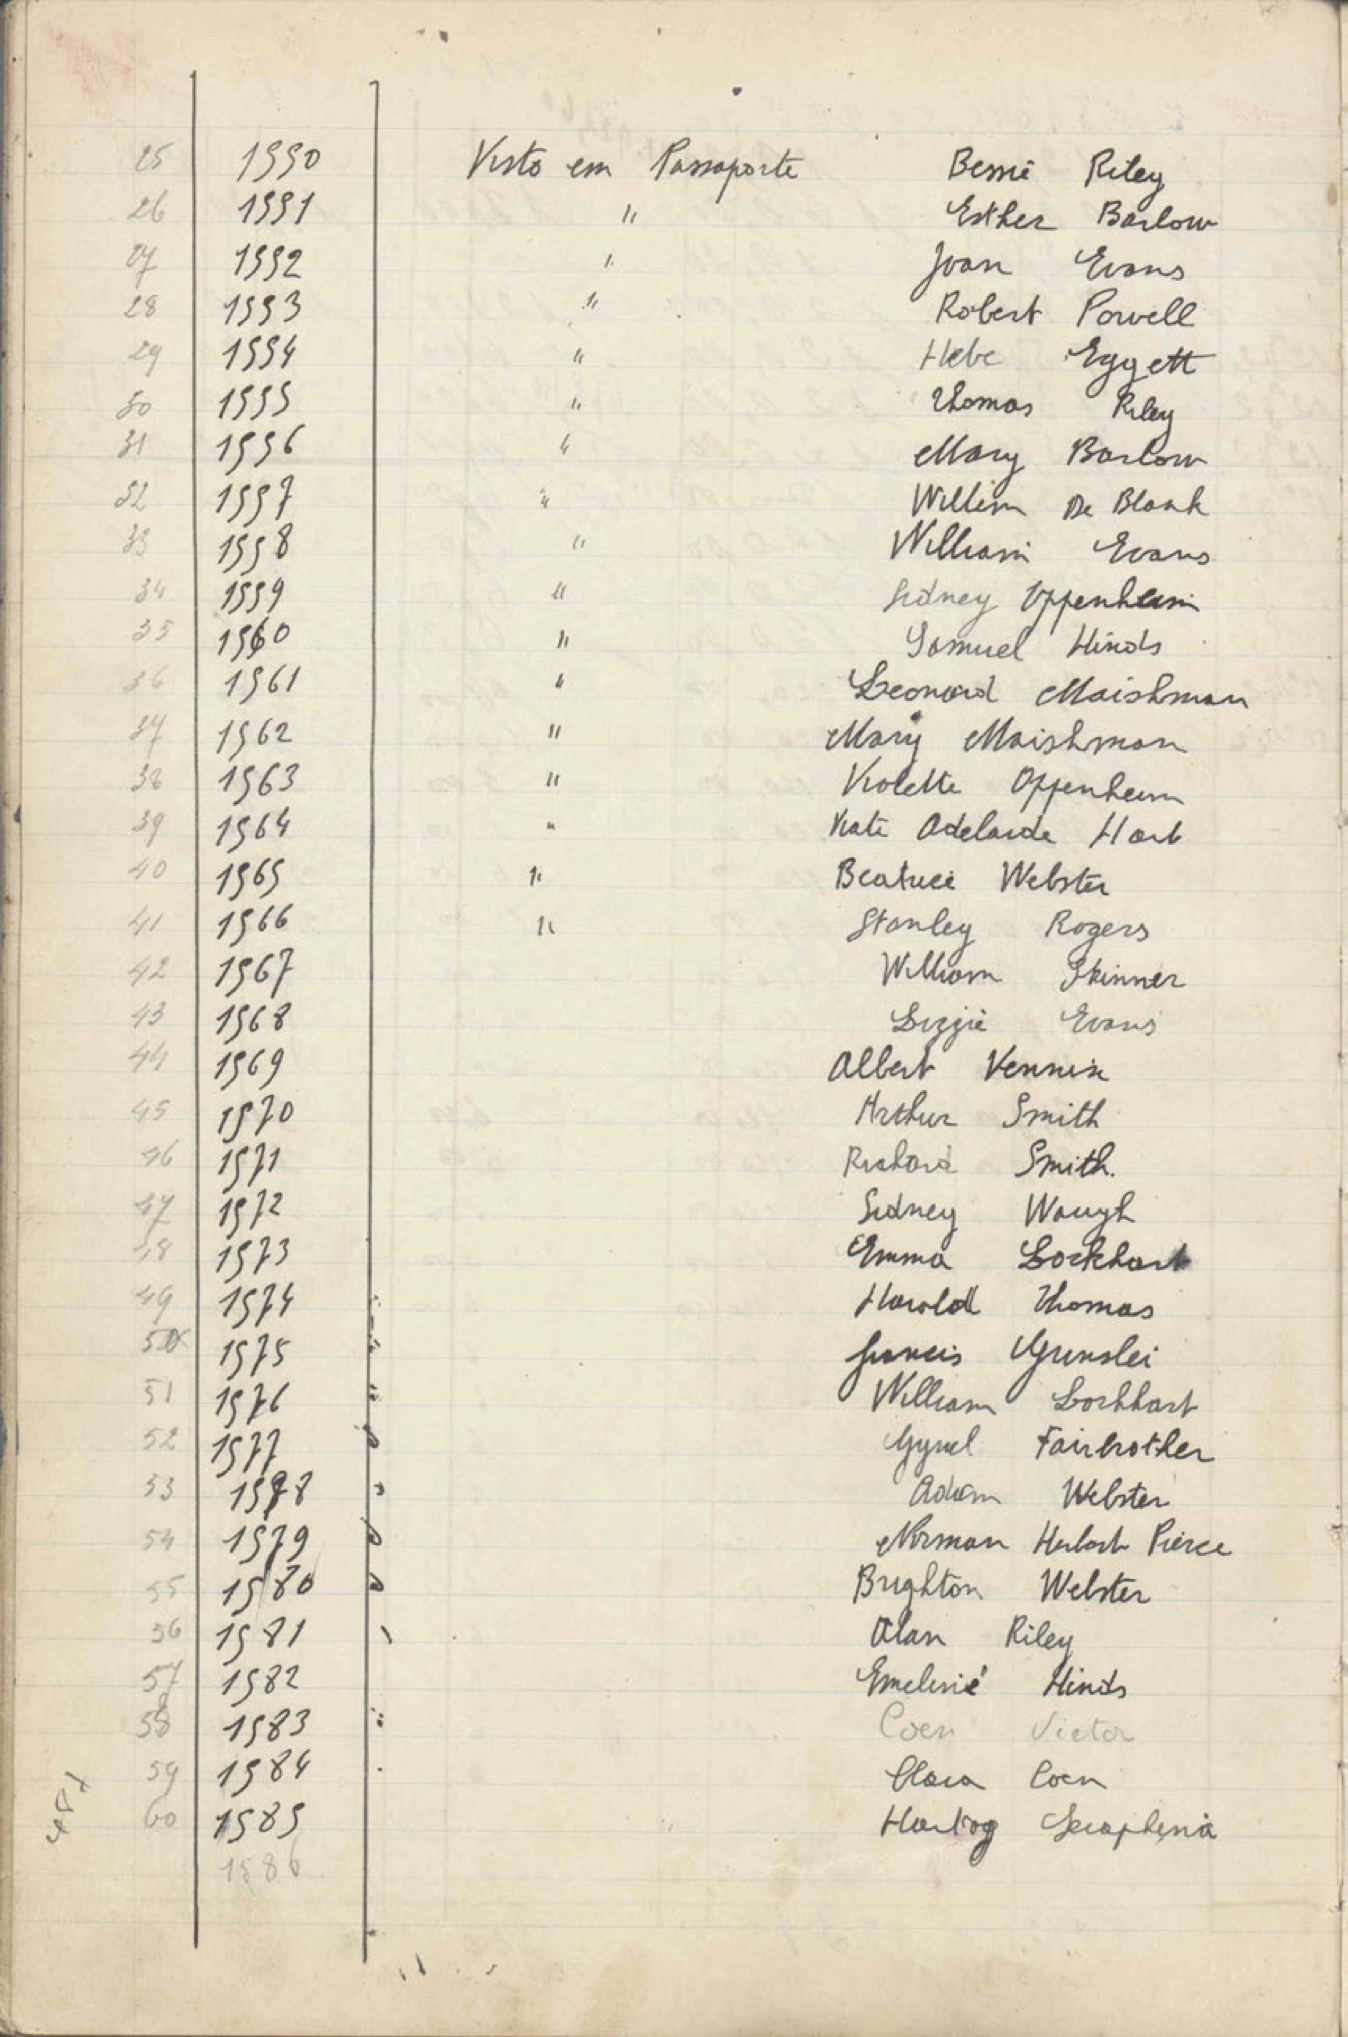 25 1550 Visto em Passaporte Bessie Riley
26 1551 " Esther Barlow
27 1552 " Joan Evans
28 1553 " Robert Powell
29 1554 " Hebe Eggett
30 1555 " Thomas Riley
31 1556 " Mary Barlow
32 1557 " Willem De Blank
33 1558 " William Evans
34 1559 " Sidney Oppenheim
35 1560 " Samuel Hinds
36 1561 " Leonard Maishman
37 1562 " Mary Maishman
38 1563 " Violette Oppenheim
39 1564 " Kate Adelaide Hart
40 1565 " Beatrice Webster
41 1566 " Stanley Rogers
42 1567 William Skinner
43 1568 Lizzie Evans
44 1569 Albert Vennin
45 1570 Arthur Smith
46 1571 Richard Smith.
47 1572 Sidney Waugh
48 1573 Emma Lockhart
49 1574 Harold Thomas
50 1575 Francis
51 1576 William Lockhart
52 1577 Fairbrother
53 1578 Adam Webster
54 1579 Norman Herbert Pierce
55 1580 Brighton Webster
56 1581 Alan Riley
57 1582 Emelině Hinds
58 1583 Coen Victor
59 1584 Clara Coen
60 1585 Hartog Seraphina
1586